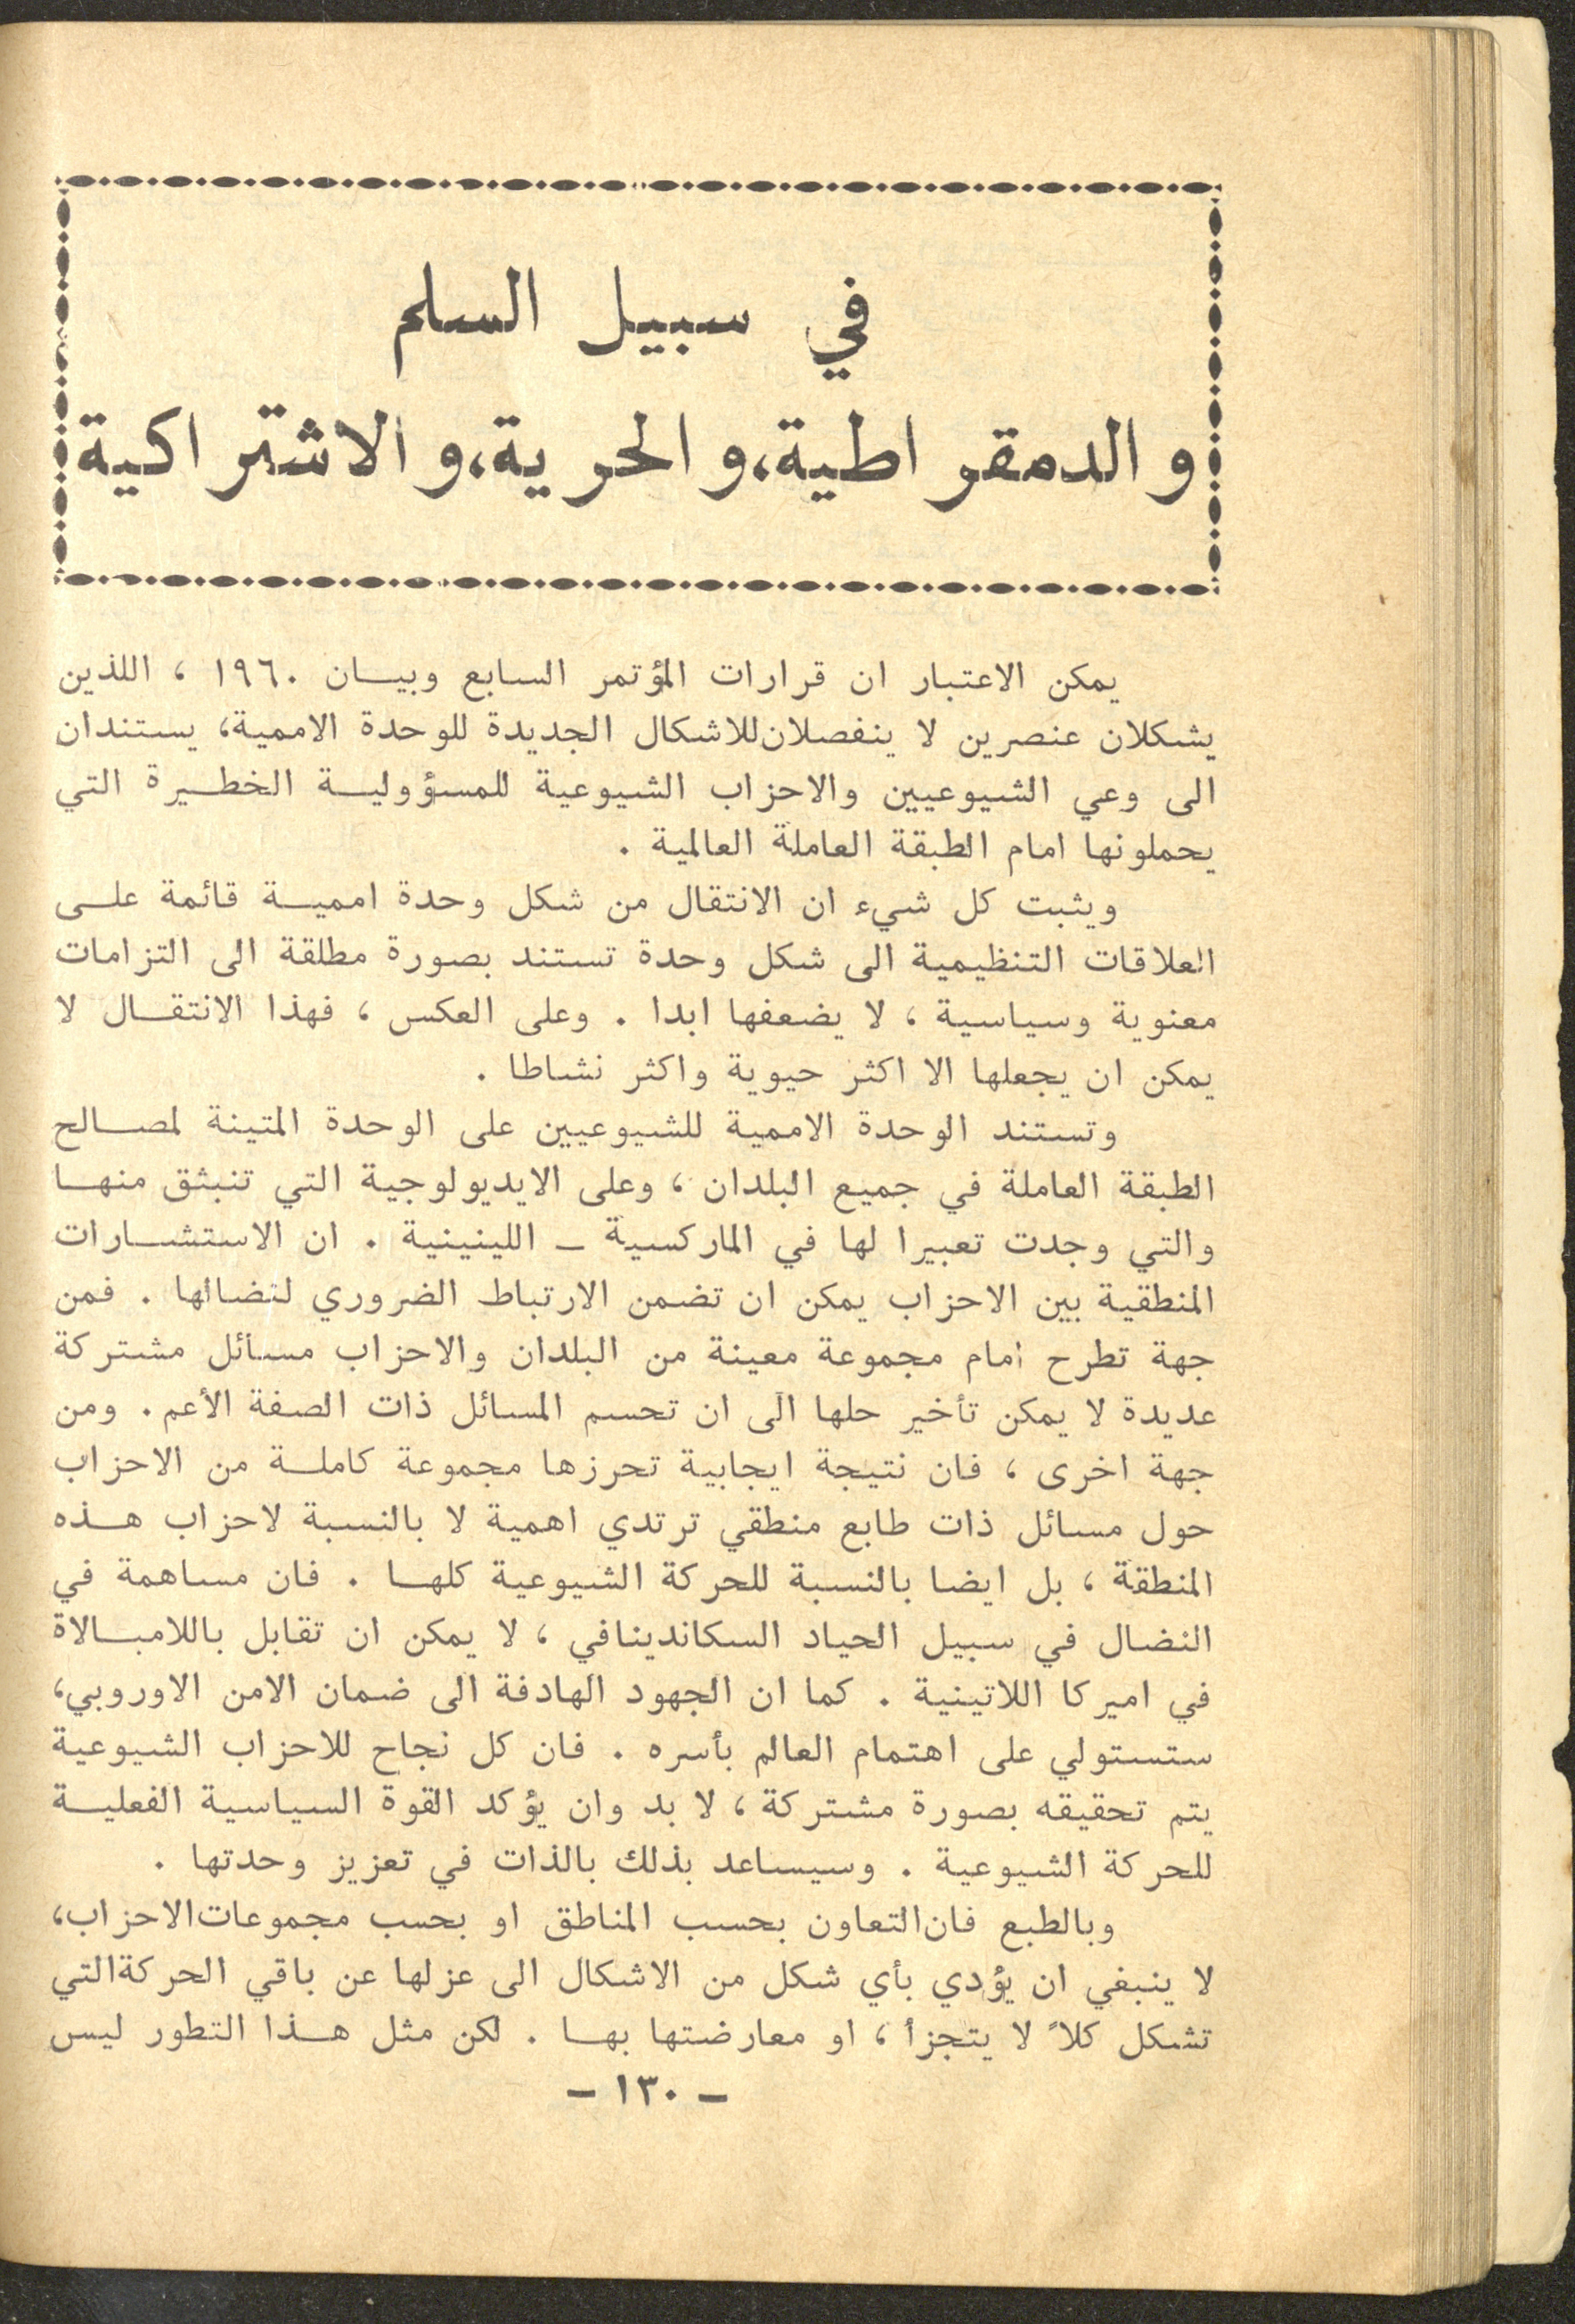 في سبيل السلم
والدمقراطية، والحرية، والاشتراكية
يمكن الاعتبار ان قرارات المؤتمر السابع وبيـان ١٩٦٠ ، اللذين
يشكلان عنصرين لا ينفصلان للاشكال الجديدة للوحدة الاممية، يستندان
الى وعي الشيوعيين والاحزاب الشيوعية للمسؤوليـة الخطـيرة التي
يحملونها امام الطبقة العاملة العالمية .
ويثبت كل شيء ان الانتقال من شكل وحدة امميـة قائمة علـى
العلاقات التنظيمية الى شكل وحدة تستند بصورة مطلقة الى التزامات
معنوية وسياسية ، لا يضعفها ابدا . وعلى العكس ، فهذا الانتقـال لا
يمكن ان يجعلها الا اكثر حيوية واكثر نشاطا .
وتستند الوحدة الاممية للشيوعيين على الوحدة المتينة لمصـالح
الطبقة العاملة في جميع البلدان ، وعلى الايديولوجية التي تنبثق منهـا
والتي وجدت تعبيرا لها في الماركسية ـ اللينينية . ان الاستشـارات
المنطقية بين الاحزاب يمكن ان تضمن الارتباط الضروري لنضالها . فمن
جهة تطرح امام مجموعة معينة من البلدان والاحزاب مسائل مشتركة
عديدة لا يمكن تأخير حلها الى ان تحسم المسائل ذات الصفة الأعم . ومن
جهة اخرى ، فان نتيجة ايجابية تحرزها مجموعة كاملـة من الاحزاب
حول مسائل ذات طابع منطقي ترتدي اهمية لا بالنسبة لاحزاب هـذه
المنطقة ، بل ايضا بالنسبة للحركة الشيوعية كلهـا . فان مساهمة في
النضال في سبيل الحياد السكاندينافي ، لا يمكن ان تقابل باللامبـالاة
في اميركا اللاتينية . كما ان الجهود الهادفة الى ضمان الامن الاوروبي،
ستستولي على اهتمام العالم بأسره . فان كل نجاح للاحزاب الشيوعية
يتم تحقيقه بصورة مشتركة ، لا بد وان يؤكد القوة السياسية الفعليـة
للحركة الشيوعية . وسيساعد بذلك بالذات في تعزيز وحدتها .
وبالطبع فان التعاون بحسب المناطق او بحسب مجموعات الاحزاب،
لا ينبغي ان يؤدي بأي شكل من الاشكال الى عزلها عن باقي الحركة التي
تشكل كلاً لا يتجزأ ، او معارضتها بهـا . لكن مثل هـذا التطور ليس
ـ ١٣٠ ـ